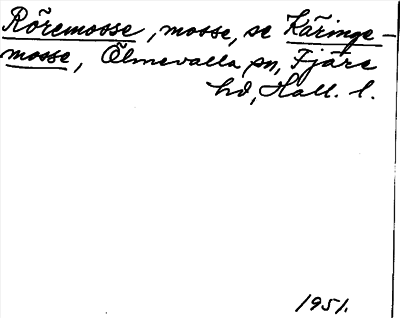 Röremosse, mosse, se Käringe-
mosse, Ölmevalla sn, Fjäre
hd, Hall. l.
1951.